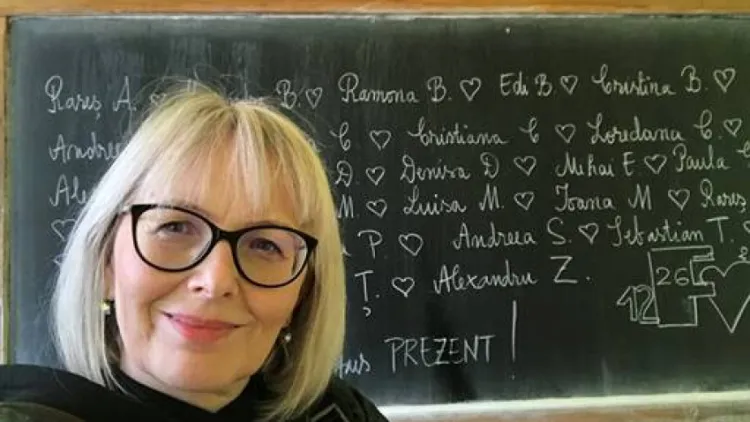 Rareș A. B. ♡ Ramona B. ♡ Edi B ♡ Cristina B. ♡
Andree C ♡ Cristiana C ♡ Loredana C. ♡
Ale D. ♡ Denisa D ♡ Mihai E ♡ Paula C
♡ M. ♡ Luisa M. ♡ Ioana M ♡ Rareș
P. ♡ Andreea S. ♡ Sebastian T. ♡
Ț. ♡ Alexandru Z.
12 26
PREZENT!